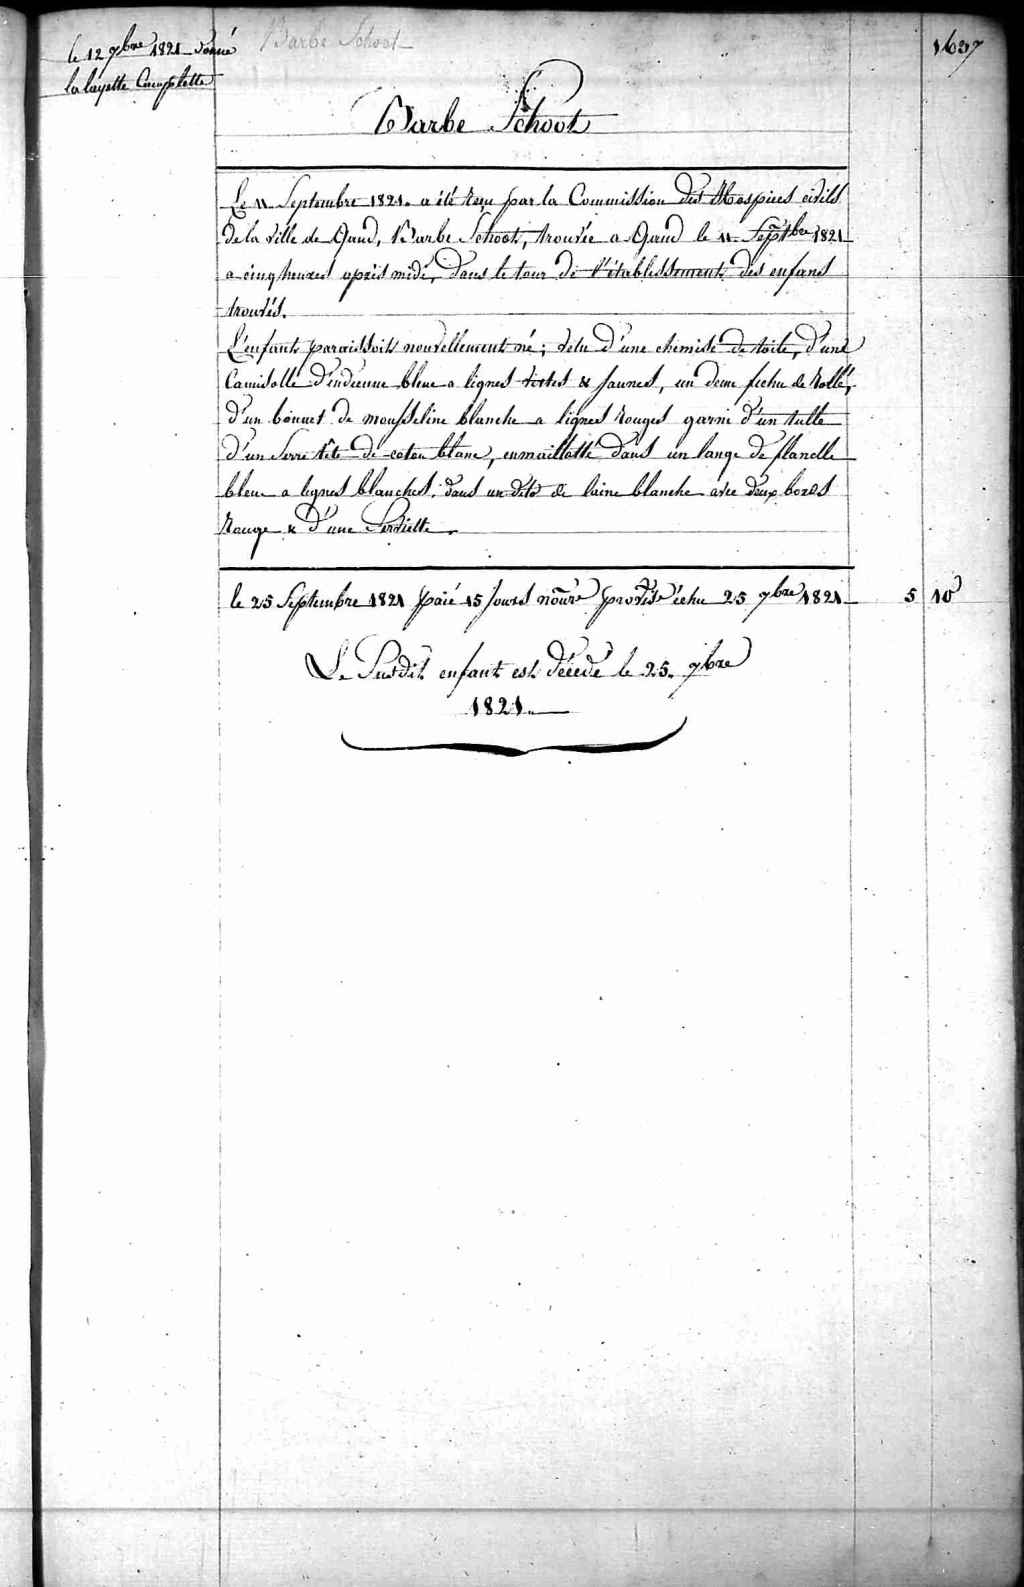 le 12 7bre 1821 donné
la layette Complette
Barbe Schoot
1637
Barbe Schoot
Le 11 Septembre 1821. a été reçu par la Commission des Hospices civils
de la ville de Gand, Barbe Schoot, trouvée a Gand le 11 Septbre 1821
a cinq heures après midi, dans le tour de l'établissement des enfans
trouvés.
L'enfant paraissoit nouvellement né; vetu d'une chemise de toile, d'une
Camisolle d'indienne bleue a lignes vertes & jaunes, un demi fichu de
d'un bonnet de mousseline blanche a lignes rouges garni d'un tulle
d'un Serre tête de coton blanc, enmaillotté dans un lange de flanelle
bleue a lignes blanches, dans un dito de laine blanche avec deux bords
rouge & d'une Serviette.
le 25 Septembre 1821 payé 15 jours nourre provisre échu 25 7bre 1821 5 10
Le Susdit enfant est décédé le 25. 7bre
1821.